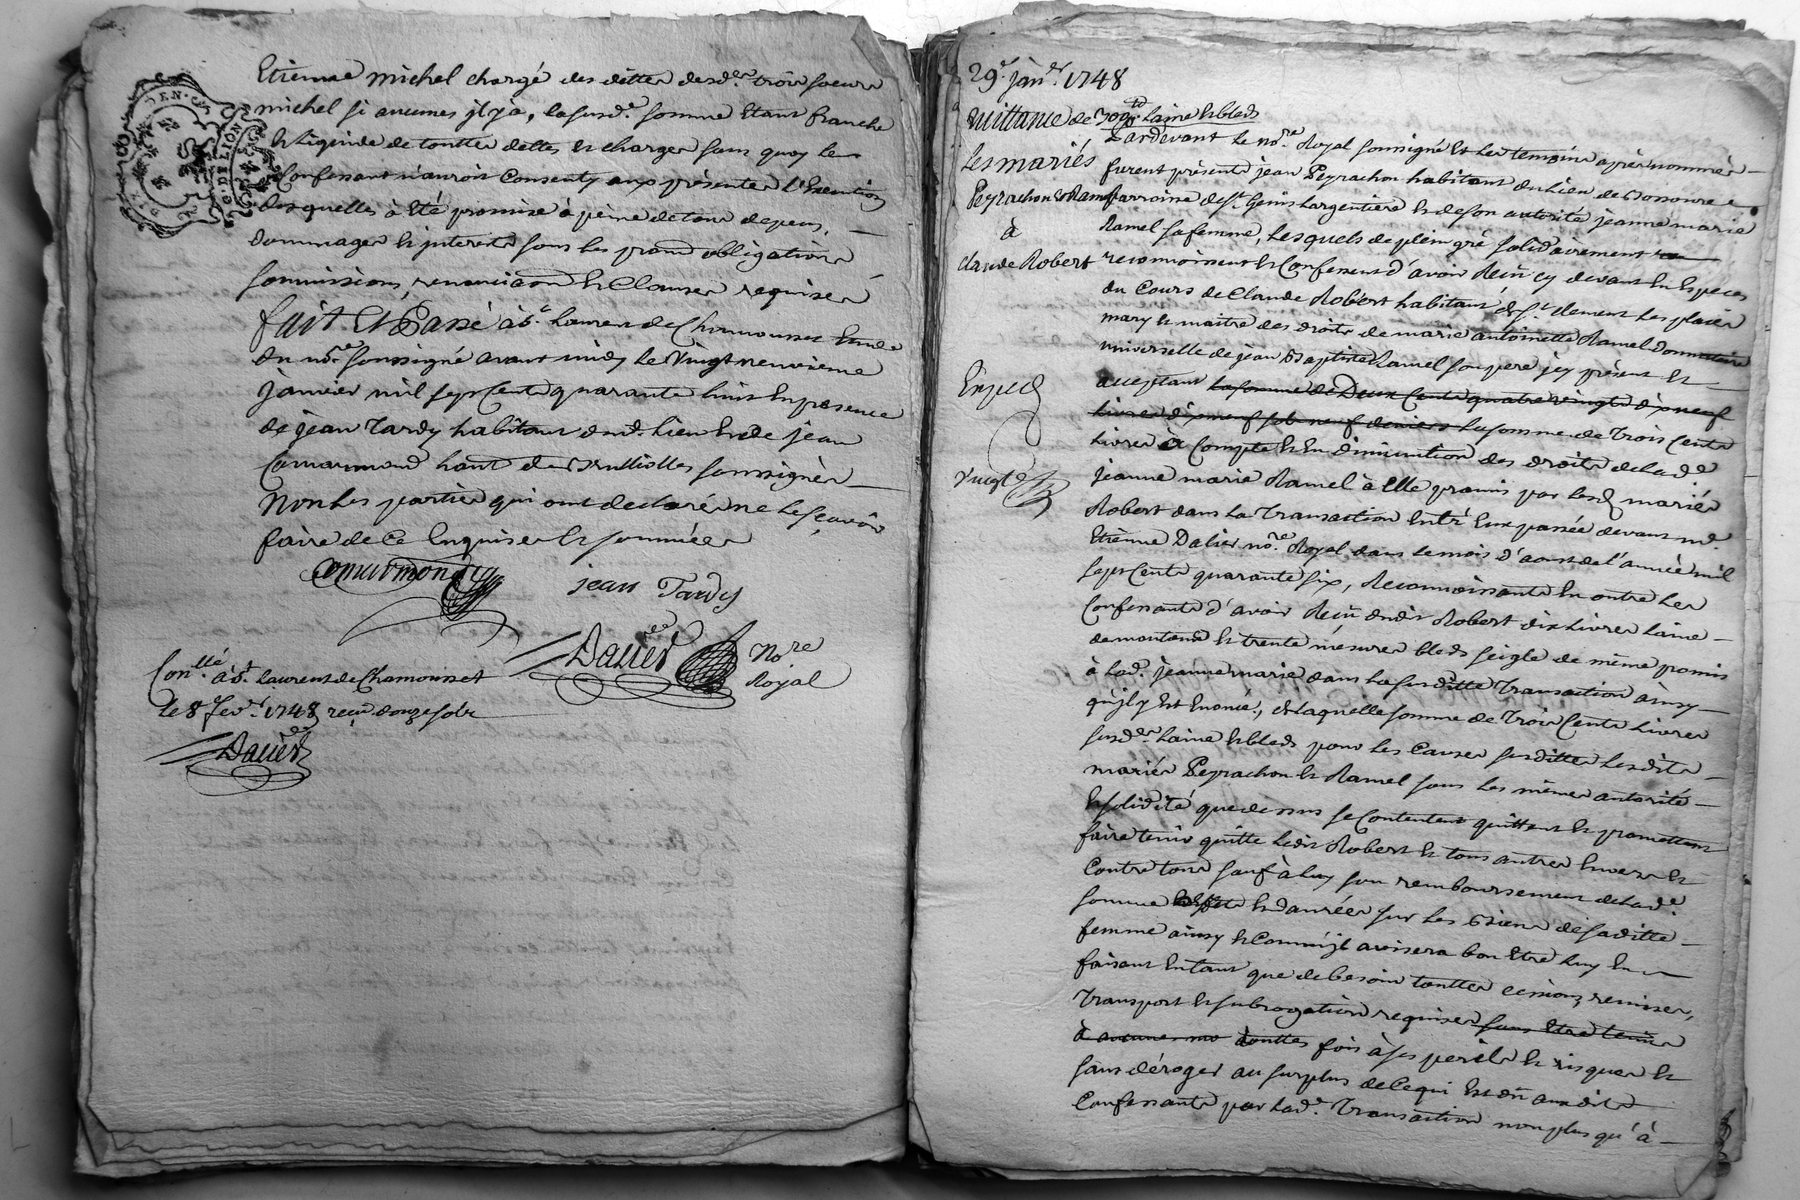 GEN. DE LION
DIX D.
Etienne michel chargé des dettes desd.es trois soeurs
michel si aucunes jl y à, lasusd.e somme etant franche
et liquide de touttes dettes et charges sans quoy le
Confessant n'auroit Consenty aux présentes l'Execution
desquelles à eté promise à peine de tous depens,
dommages et interets sous les obligations
soumissions, renonciaons et Clauses requises
fait Et Passé à St Laurent de Chamousset Etude
du no.re soussigné avant midy le vingt neuvieme
janvier mil sept Cents quarante huit En presence
de jean Tardy habitant dud. lieu et de jean
Comarmond haut de Brullioles soussignés
Non les parties qui ont declaré ne le sçavoir
faire de Ce Enquises et sommées
Comarmond
jean Tardy
Daliér No.re Royal
Con.llé à St Laurent de Chamousset
le 8 fev.er 1748 reçu douze sols
Daliér
29.e janv.er 1748
quittance de 300ll Laine et bleds
Les mariés
Peyrachon et Ramel
à
Claude Robert
Expedié
vingt s
Pardevant le no.re Royal soussigné et les temoins après nommés
furent présents jean Peyrachon habitant du lieu de
Parroisse de St Genis Largentiere et de son autorité jeanne marie
Ramel sa femme, Lesquels de plein gré solidairement
reconnoissent et Confessent d'avoir Reçu cy devant En Especes
du Cours de Claude Robert habitant de St Clement les places
mary et maitre des droits de marie antoinette Ramel donnataire
universelle de jean Baptiste Ramel son pere jcy présent et
acceptant la somme de Deux Cents quatre vingts dix neuf
livres dix neuf sols neuf deniers La somme de Trois Cents
Livres à Compte et En diminution des droits de lad.e
jeanne marie Ramel à Elle promis par lesd. mariés
Robert dans la Transaction Entr'Eux passée devant m.e
Etienne Dalier no.re Royal dans le mois d'aoust de l'année mil
sept Cents quarante six, Reconnoissants En outre Les
Confessants d'avoir Reçu dudit Robert dix Livres Laine
de moutons et trente mesures bleds seigle de même promis
à lad. jeanne marie dans la susditte Transaction ainsy
qu'jl y Est Enoncé, de laquelle somme de Trois Cents Livres
susd.es Laine et bleds pour les Causes susdittes Lesdits
mariés Peyrachon et Ramel sous les mêmes autorité
et solidité que dessus se Contentent quittent et promettent
faire tenir quitte Ledit Robert et tous autres Envers et
Contre tous sauf à Luy son remboursement de lad.e
somme et danrées sur les Biens de saditte
femme ainsy et Comm'jl avisera bon Etre Luy En
faisant En tant que de besoin touttes cessions, remises,
Transport et subrogations requises sans Etre tenus
à aucunes touttes fois à ses perils et risques et
sans déroger au surplus de Ce qui Est dû auxdits
Confessants par lad.e Transaction non plus qu'à